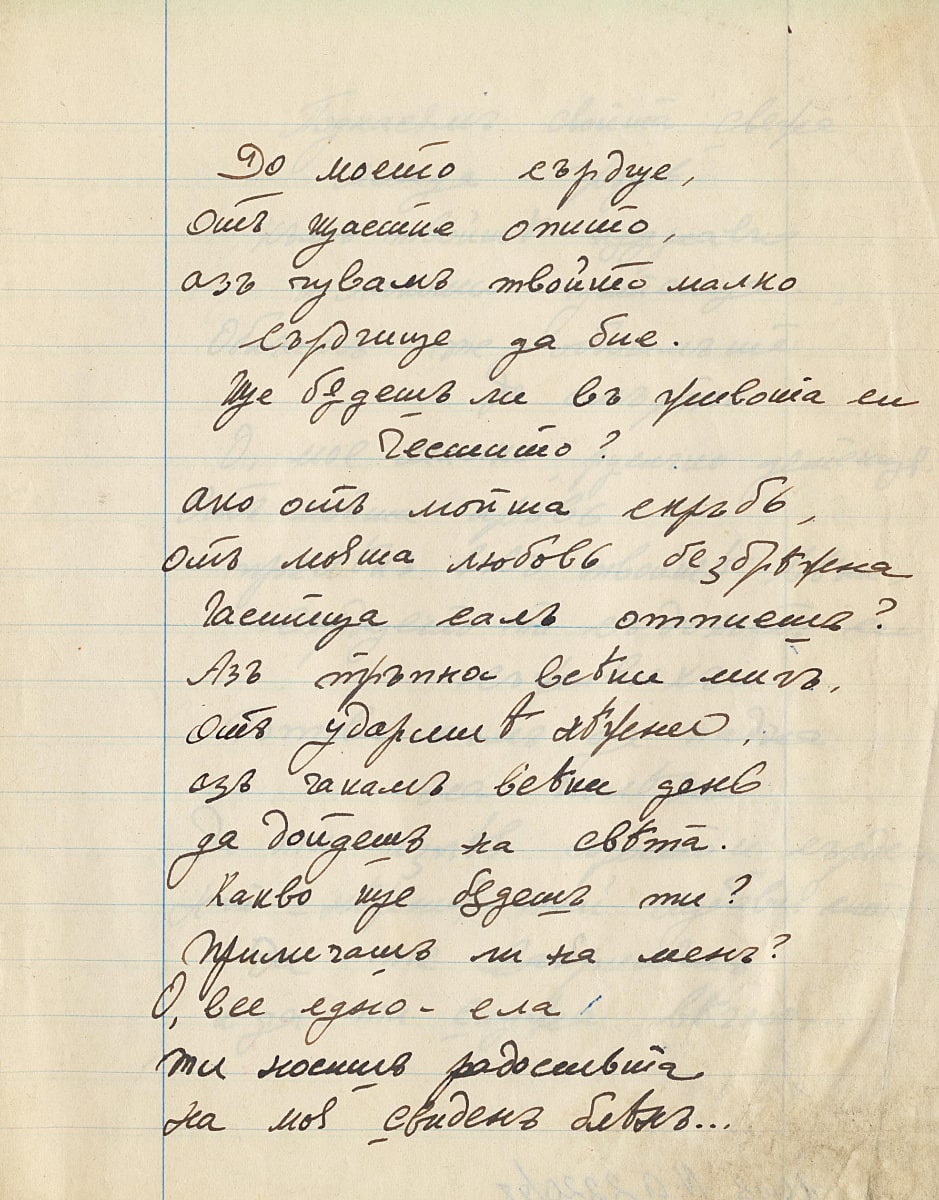 До моето сърдце,
отъ щастие опито,
азъ чувамъ твойто малко
сърдчице да бие.
Ще бѫдешъ ли въ живота си
честито?
ако отъ мойта скръбь,
отъ моята любовь безбрѣжна
частица самъ отпиешъ?
Азъ тръпна всѣки мигъ,
отъ ударитѣ нѣжни,
азъ чакамъ всѣки день
да дойдешъ на свѣта.
Какво ще бѫдешъ ти?
Приличашъ ли на менъ?
О, все едно - ела!
ти носишъ радостьта
на моя свиденъ блѣнъ...